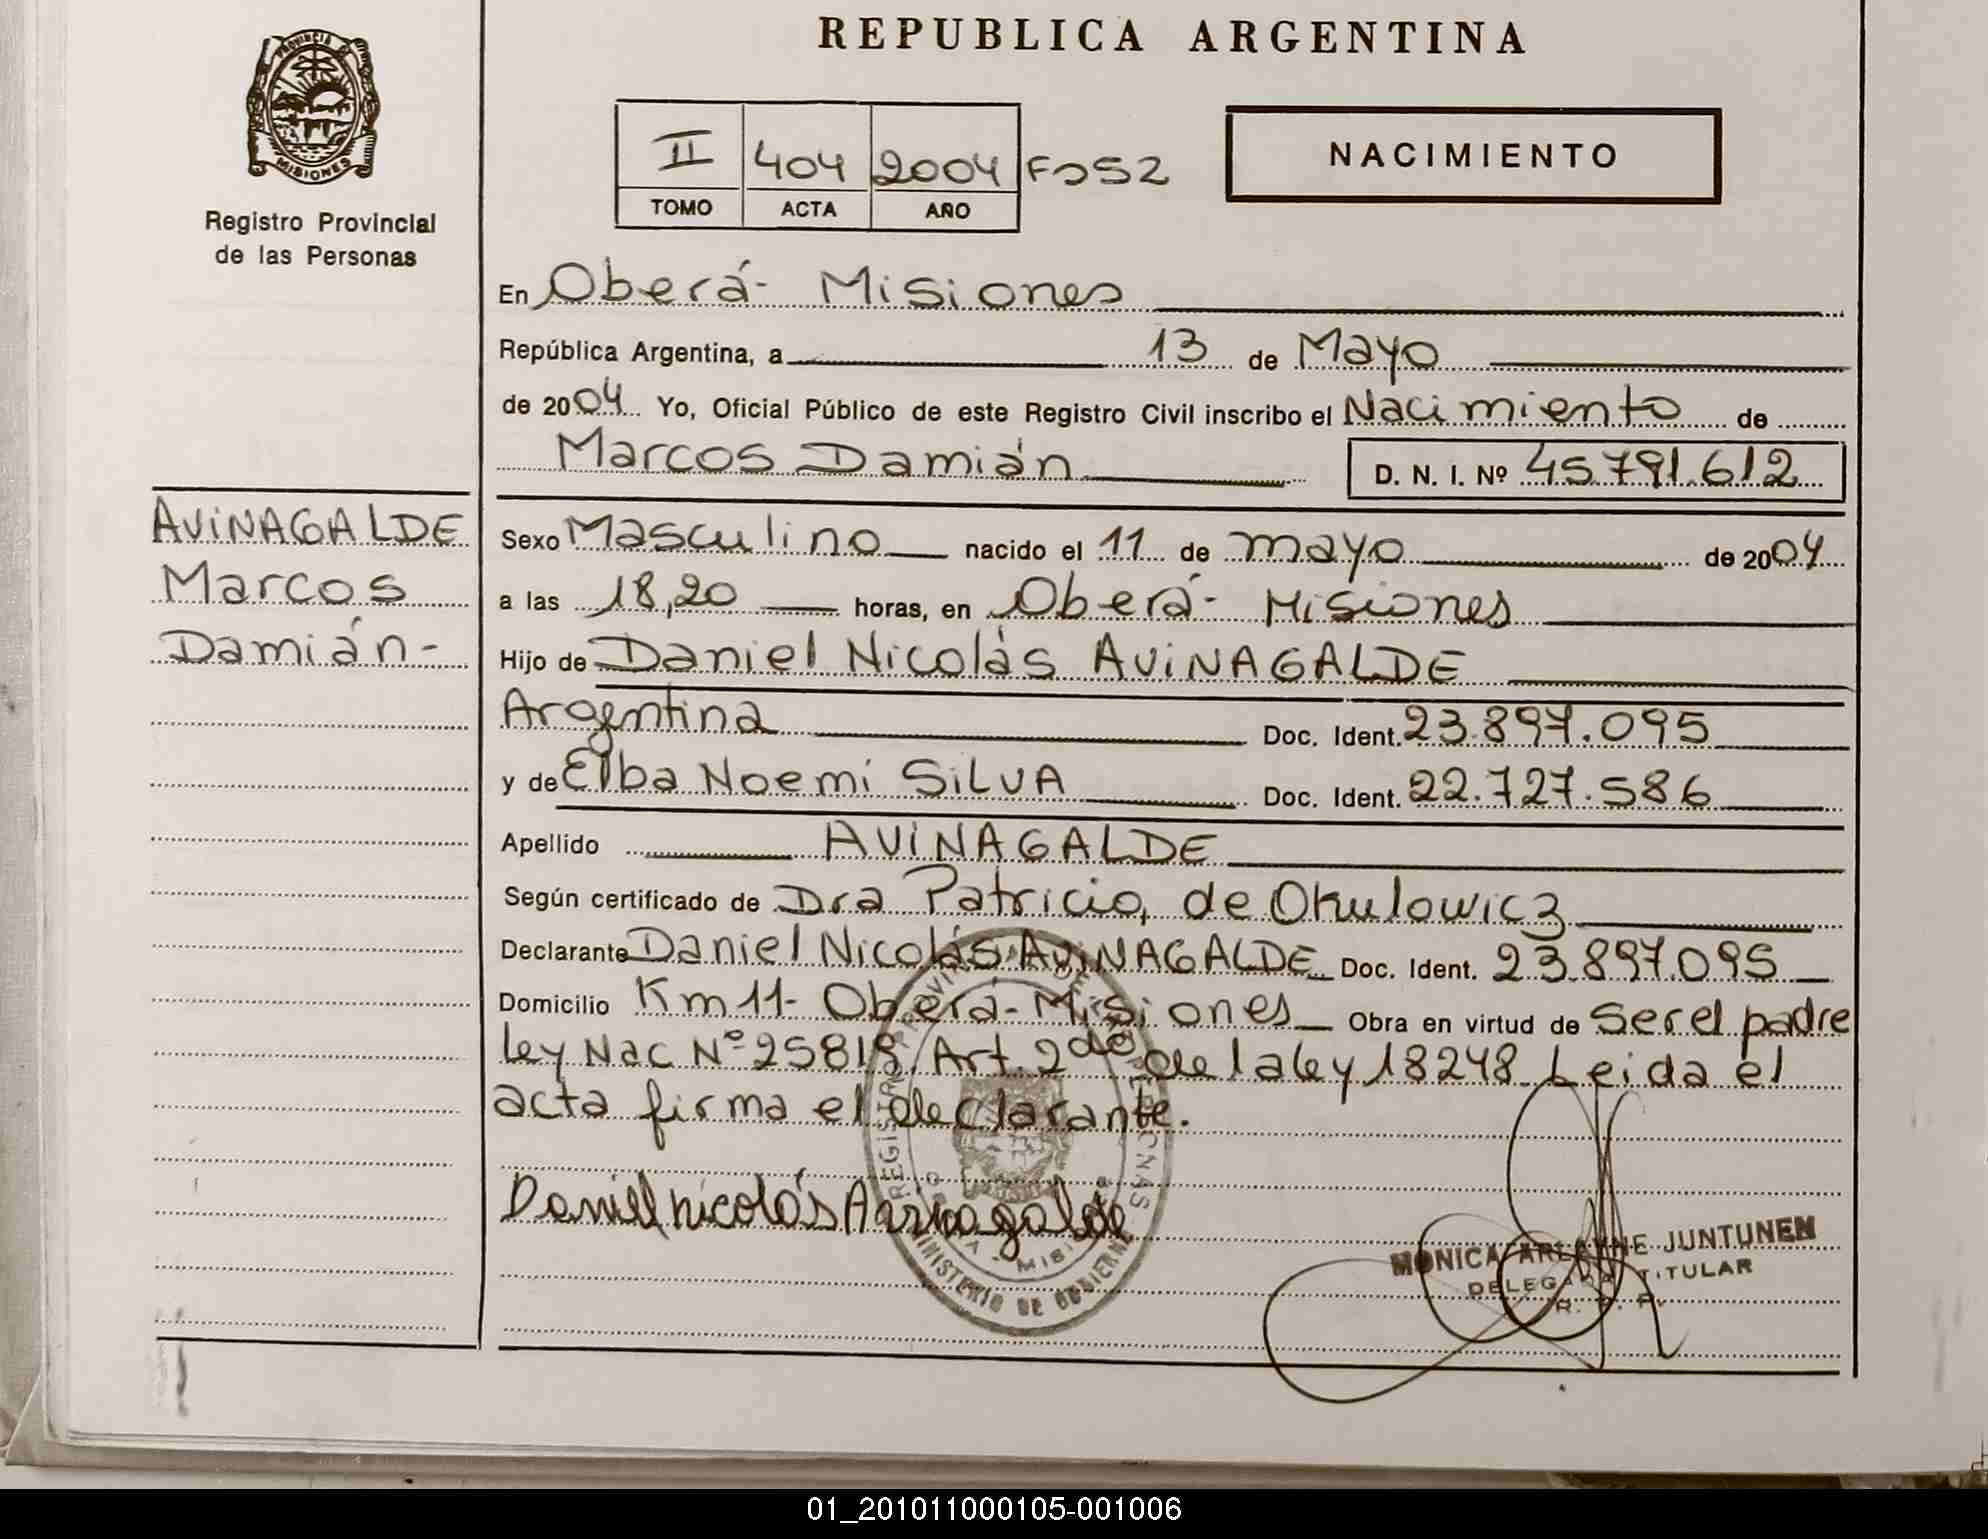 REPUBLICA ARGENTINA
PROVINCIA
MISIONES
Registro Provincial
de las Personas
II 404 2004 Fo52
TOMO ACTA AÑO
NACIMIENTO
En Oberá- Misiones
República Argentina, a 13 de Mayo
de 2004 Yo, Oficial Público de este Registro Civil inscribo el Nacimiento de
Marcos Damián D. N. I. Nº 45.791.612
AViNAGALDE
Marcos
Damián-
Sexo Masculino nacido el 11 de mayo de 2004
a las 18,20 horas, en Oberá- Misiones
Hijo de Daniel Nicolás AViNAGALDE
Argentina Doc. Ident. 23.897.095
y de Elba Noemí SiLVA Doc. Ident. 22.727.586
Apellido AViNAGALDE
Según certificado de Dra Patricia, de Okulowicz
Declarante Daniel Nicolás AViNAGALDE Doc. Ident. 23.897.095
Domicilio Km 11- Oberá- Misiones Obra en virtud de Ser el padre
ley Nac Nº 25818 Art. 2do de la ley 18248 Leida el
acta firma el declarante.
Daniel nicolás Avinagalde
MONICA ARLAYNE JUNTUNEN
DELEGADA TITULAR
R. P. P.
MINISTERIO DE GOBIERNO
01_201011000105-001006